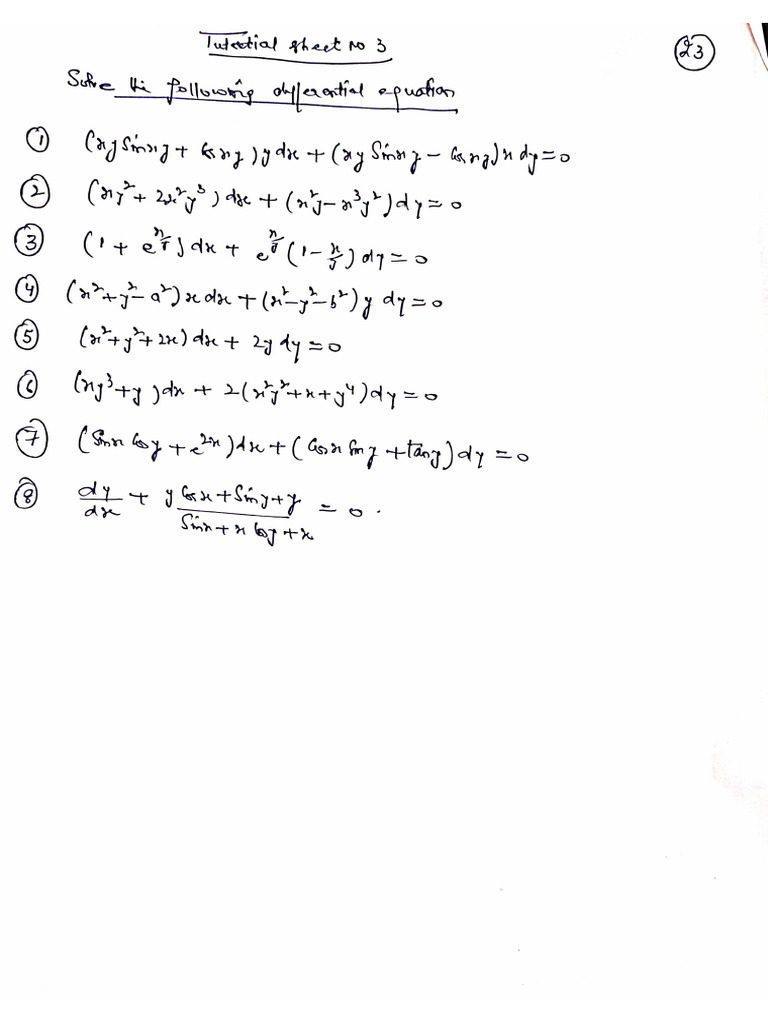 Tutorial sheet no 3
23
Solve the following differential equation
① (xy Sin xy + Cos xy) y dx + (xy Sin xy − Cos xy) x dy = 0
② (xy² + 2x²y³) dx + (x²y − x³y²) dy = 0
③ (1 + e^{x/y}) dx + e^{x/y} (1 − x/y) dy = 0
④ (x² + y² − a²) x dx + (x² − y² − b²) y dy = 0
⑤ (x² + y² + 2x) dx + 2y dy = 0
⑥ (xy³ + y) dx + 2(x²y² + x + y⁴) dy = 0
⑦ (Sinx Cosy + e^{2x}) dx + (Cosx Siny + tany) dy = 0
⑧ dy/dx + (y Cosx + Siny + y)/(Sinx + x Cosy + x) = 0.